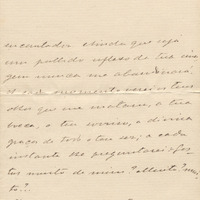 encantador. Ainda que seja
um pallido reflexo de tua ima
gem nunca me abandonará.
A cada momento vejo os teus
olhos que me mataram, a tua
boca, o teu sorriso, a divina
graça de todo o teu ser; a cada
instante me perguntares: gos
tas muito de mim? Muito? mui
to?.